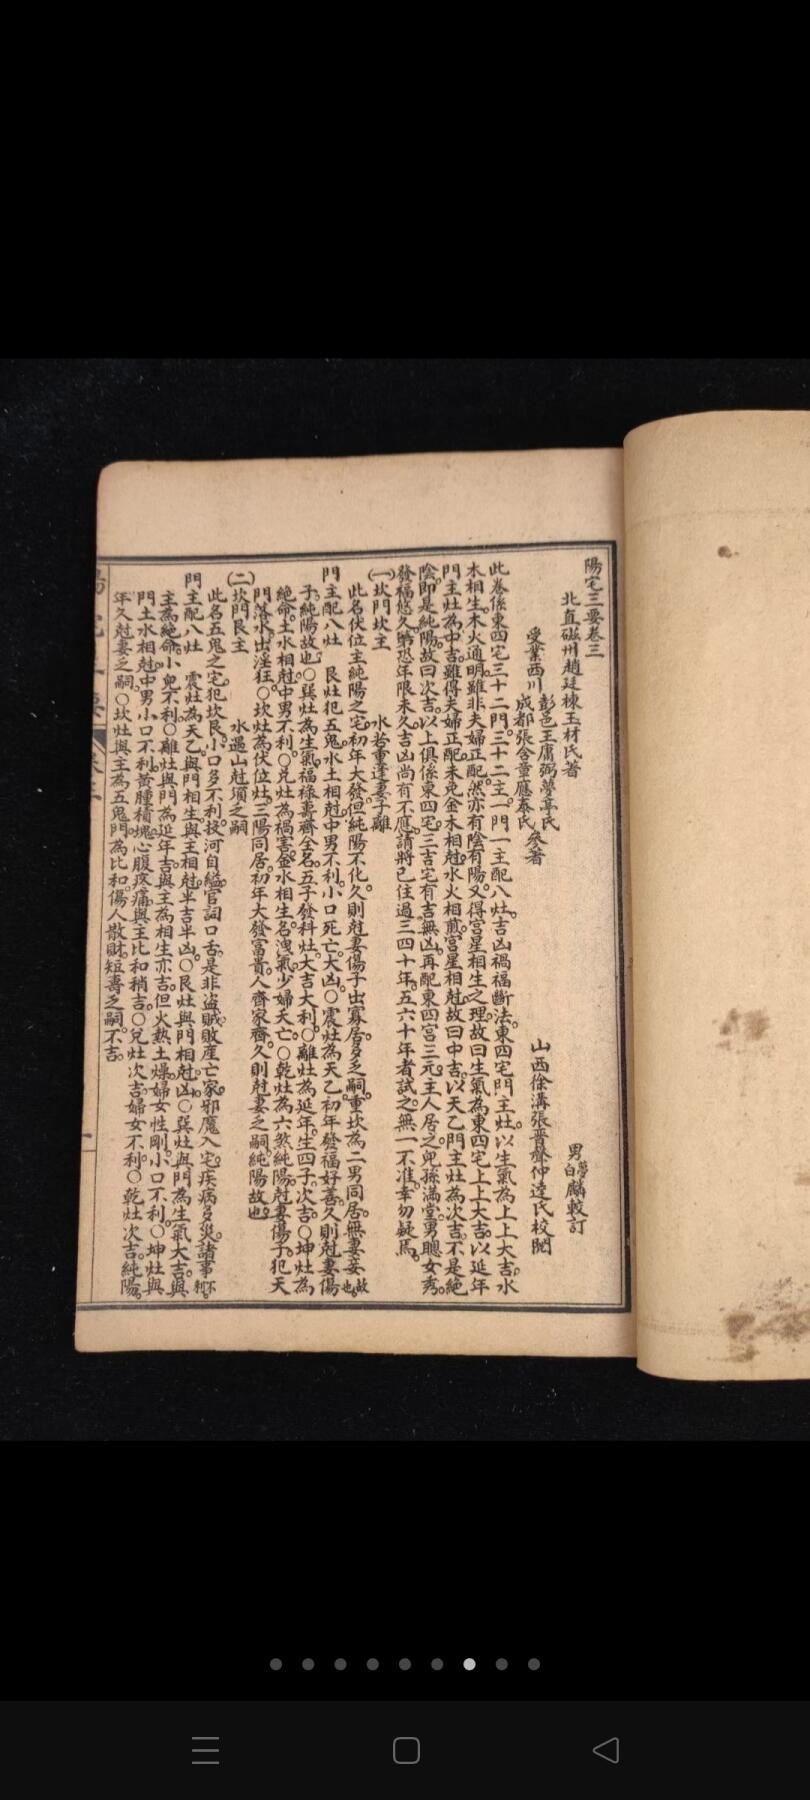 陽宅三要卷三
北直磁州趙廷棟玉材氏著
男夢白麟較訂
受業西川彭邑王庸弼夢亭氏成都張含章應泰氏參著
山西徐溝張晋㷌仲逵氏校閱
此卷係東四宅三十二門三十二主一門一主配八灶吉凶禍福斷法東四宅門主灶以生氣為上上大吉水
木相生木火通明雖非夫婦正配然亦有陰有陽又得宮星相生之理故曰生氣為東四宅上上大吉以延年
門主灶為中吉雖得夫婦正配未免金木相尅水火相煎宮星相尅故曰中吉以天乙門主灶為次吉不是絕
陰即是純陽故曰次吉以上俱係東四宅三吉宅有吉無凶再配東四宮三元主人居之兒孫滿堂男聰女秀
發福悠久第恐年限未久吉凶尚有不應請將已住過三四十年五六十年者試之無一不准幸勿疑焉
(一)坎門坎主　水若重逢妻子離
此名伏位主純陽之宅初年大發但純陽不化久則尅妻傷子出寡居多乏嗣重坎為二男同居無妻妾故也
門主配八灶　艮灶犯五鬼水土相尅中男不利小口死亡大凶○震灶為天乙初年發福好善久則尅妻傷
子純陽故也○巽灶為生氣福祿壽齊全名五子發科灶大吉大利○離灶為延年生四子次吉○坤灶為
絕命土水相尅中男不利○兌灶為禍害金水相生名洩氣少婦夭亡○乾灶為六煞純陽尅妻傷子犯天
門落水出淫狂○坎灶為伏位灶三陽同居初年大發富貴人齊家齊久則尅妻乏嗣純陽故也
(二)坎門艮主　水遇山尅須乏嗣
此名五鬼之宅犯坎艮小口多不利投河自縊官詞口舌是非盜賊敗產亡家邪魔入宅疾病多災諸事不利
門主配八灶　震灶為天乙與門相生與主相尅半吉半凶○艮灶與門相尅凶○巽灶與門為生氣大吉與
主為絕命小兒不利○離灶與門為延年吉與主為相生亦吉但火熱土燥婦女性剛小口不利○坤灶與
門土水相尅中男小口不利黃腫積塊心腹疼痛與主比和稍吉○兌灶次吉婦女不利○乾灶次吉純陽
年久尅妻乏嗣○坎灶與主為五鬼門為比和傷人散財短壽乏嗣不吉